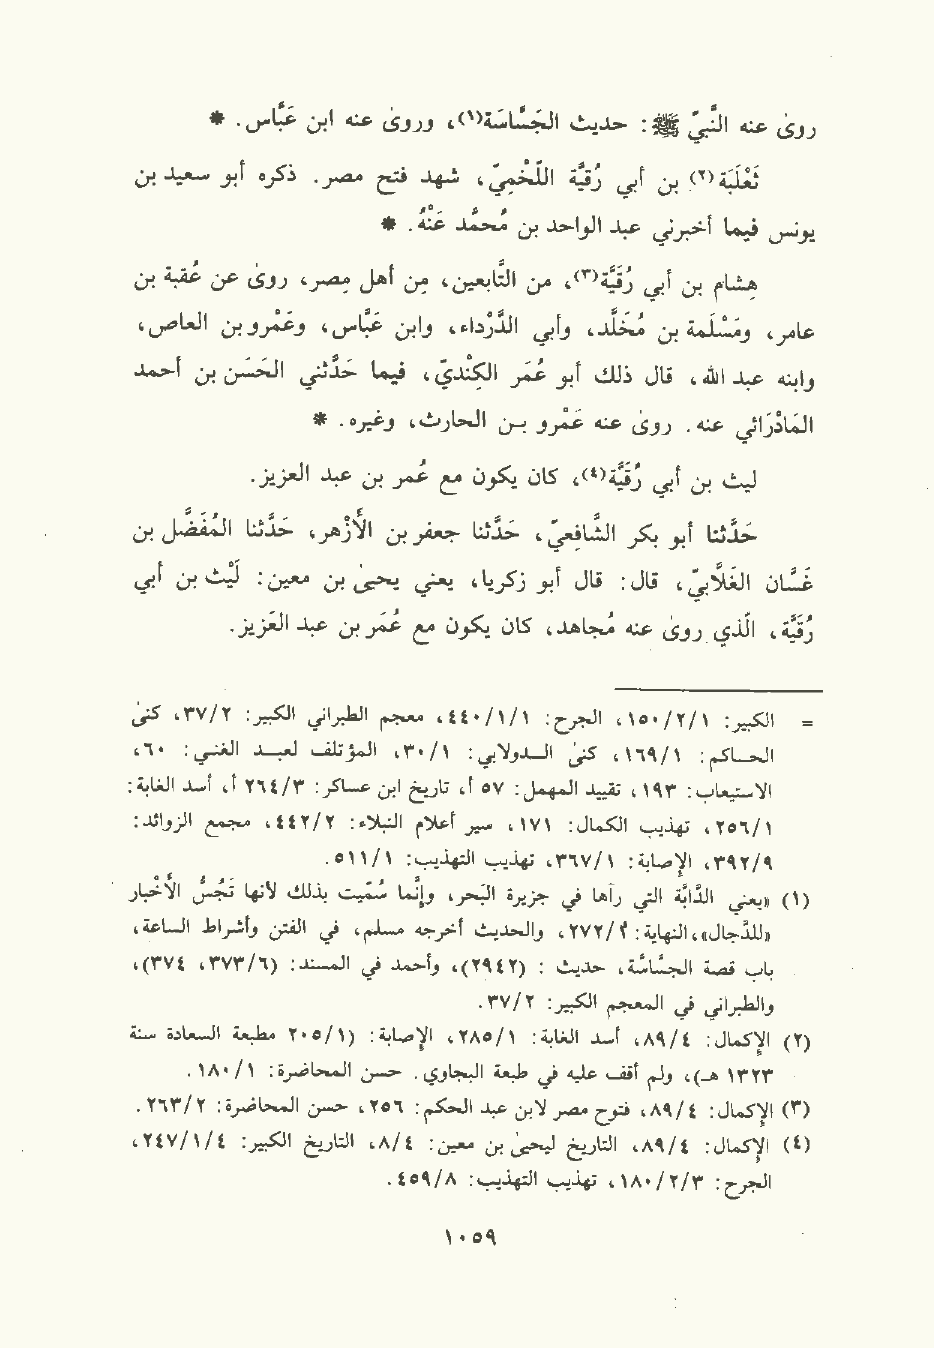 روىٰ عنه النَّبيّ ﷺ: حديث الجَسَّاسَة(١)، وروىٰ عنه ابن عبَّاس. *
ثَعْلَبَة(٢) بن أبي رُقَيَّة اللَّخْمِيّ، شهد فتح مصر. ذكره أبو سعيد بن
يونس فيما أخبرني عبد الواحد بن مُحمَّد عَنْهُ. *
هِشام بن أبي رُقَيَّة(٣)، من التَّابعين، مِن أهل مِصر، روىٰ عن عُقبة بن
عامر، ومَسْلَمة بن مُخَلَّد، وأبي الدَّرْداء، وابن عَبَّاس، وعَمْرو بن العاص،
وابنه عبد الله، قال ذلك أبو عُمَر الكِنْدِيّ، فيما حَدَّثني الحَسَن بن أحمد
المَادْرَائي عنه. روىٰ عنه عَمْرو بن الحارث، وغيره. *
ليث بن أبي رُقَيَّة(٤)، كان يكون مع عُمر بن عبد العزيز.
حَدَّثنا أبو بكر الشَّافِعيّ، حَدَّثنا جعفر بن الأَزْهر، حَدَّثنا المُفَضَّل بن
غسَّان الغَلَّابيّ، قال: قال أبو زكريا، يعني يحيىٰ بن معين: لَيْث بن أبي
رُقَيَّة، الَّذي روىٰ عنه مُجاهد، كان يكون مع عُمَر بن عبد العَزيز.
= الكبير: ١٥٠/٢/١، الجرح: ٤٤٠/١/١، معجم الطبراني الكبير: ٣٧/٢، كنىٰ
الحاكم: ١٦٩/١، كنىٰ الدولابي: ٣٠/١، المؤتلف لعبد الغني: ٦٠،
الاستيعاب: ١٩٣، تقييد المهمل: ٥٧ أ، تاريخ ابن عساكر: ٢٦٤/٣ أ، أسد الغابة:
٢٥٦/١، تهذيب الكمال: ١٧١، سير أعلام النبلاء: ٤٤٢/٢، مجمع الزوائد:
٣٩٢/٩، الإصابة: ٣٦٧/١، تهذيب التهذيب: ٥١١/١.
(١) «يعني الدَّابَّة التي رآها في جزيرة البَحر، وإنَّما سُمِّيت بذلك لأنها تَجُسُّ الأَخبار
للدَّجال»، النهاية: ٢٧٢/١، والحديث أخرجه مسلم، في الفتن وأشراط الساعة،
باب قصة الجسَّاسَة، حديث : (٢٩٤٢)، وأحمد في المسند: (٣٧٣/٦، ٣٧٤)،
والطبراني في المعجم الكبير: ٣٧/٢.
(٢) الإكمال: ٨٩/٤، أسد الغابة: ٢٨٥/١، الإصابة: (٢٠٥/١ مطبعة السعادة سنة
١٣٢٣ هـ)، ولم أقف عليه في طبعة البجاوي. حسن المحاضرة: ١٨٠/١.
(٣) الإكمال: ٨٩/٤، فتوح مصر لابن عبد الحكم: ٢٥٦، حسن المحاضرة: ٢٦٣/٢.
(٤) الإكمال: ٨٩/٤، التاريخ ليحيىٰ بن معين: ٨/٤، التاريخ الكبير: ٢٤٧/١/٤،
الجرح: ١٨٠/٢/٣، تهذيب التهذيب: ٤٥٩/٨.
١٠٥٩